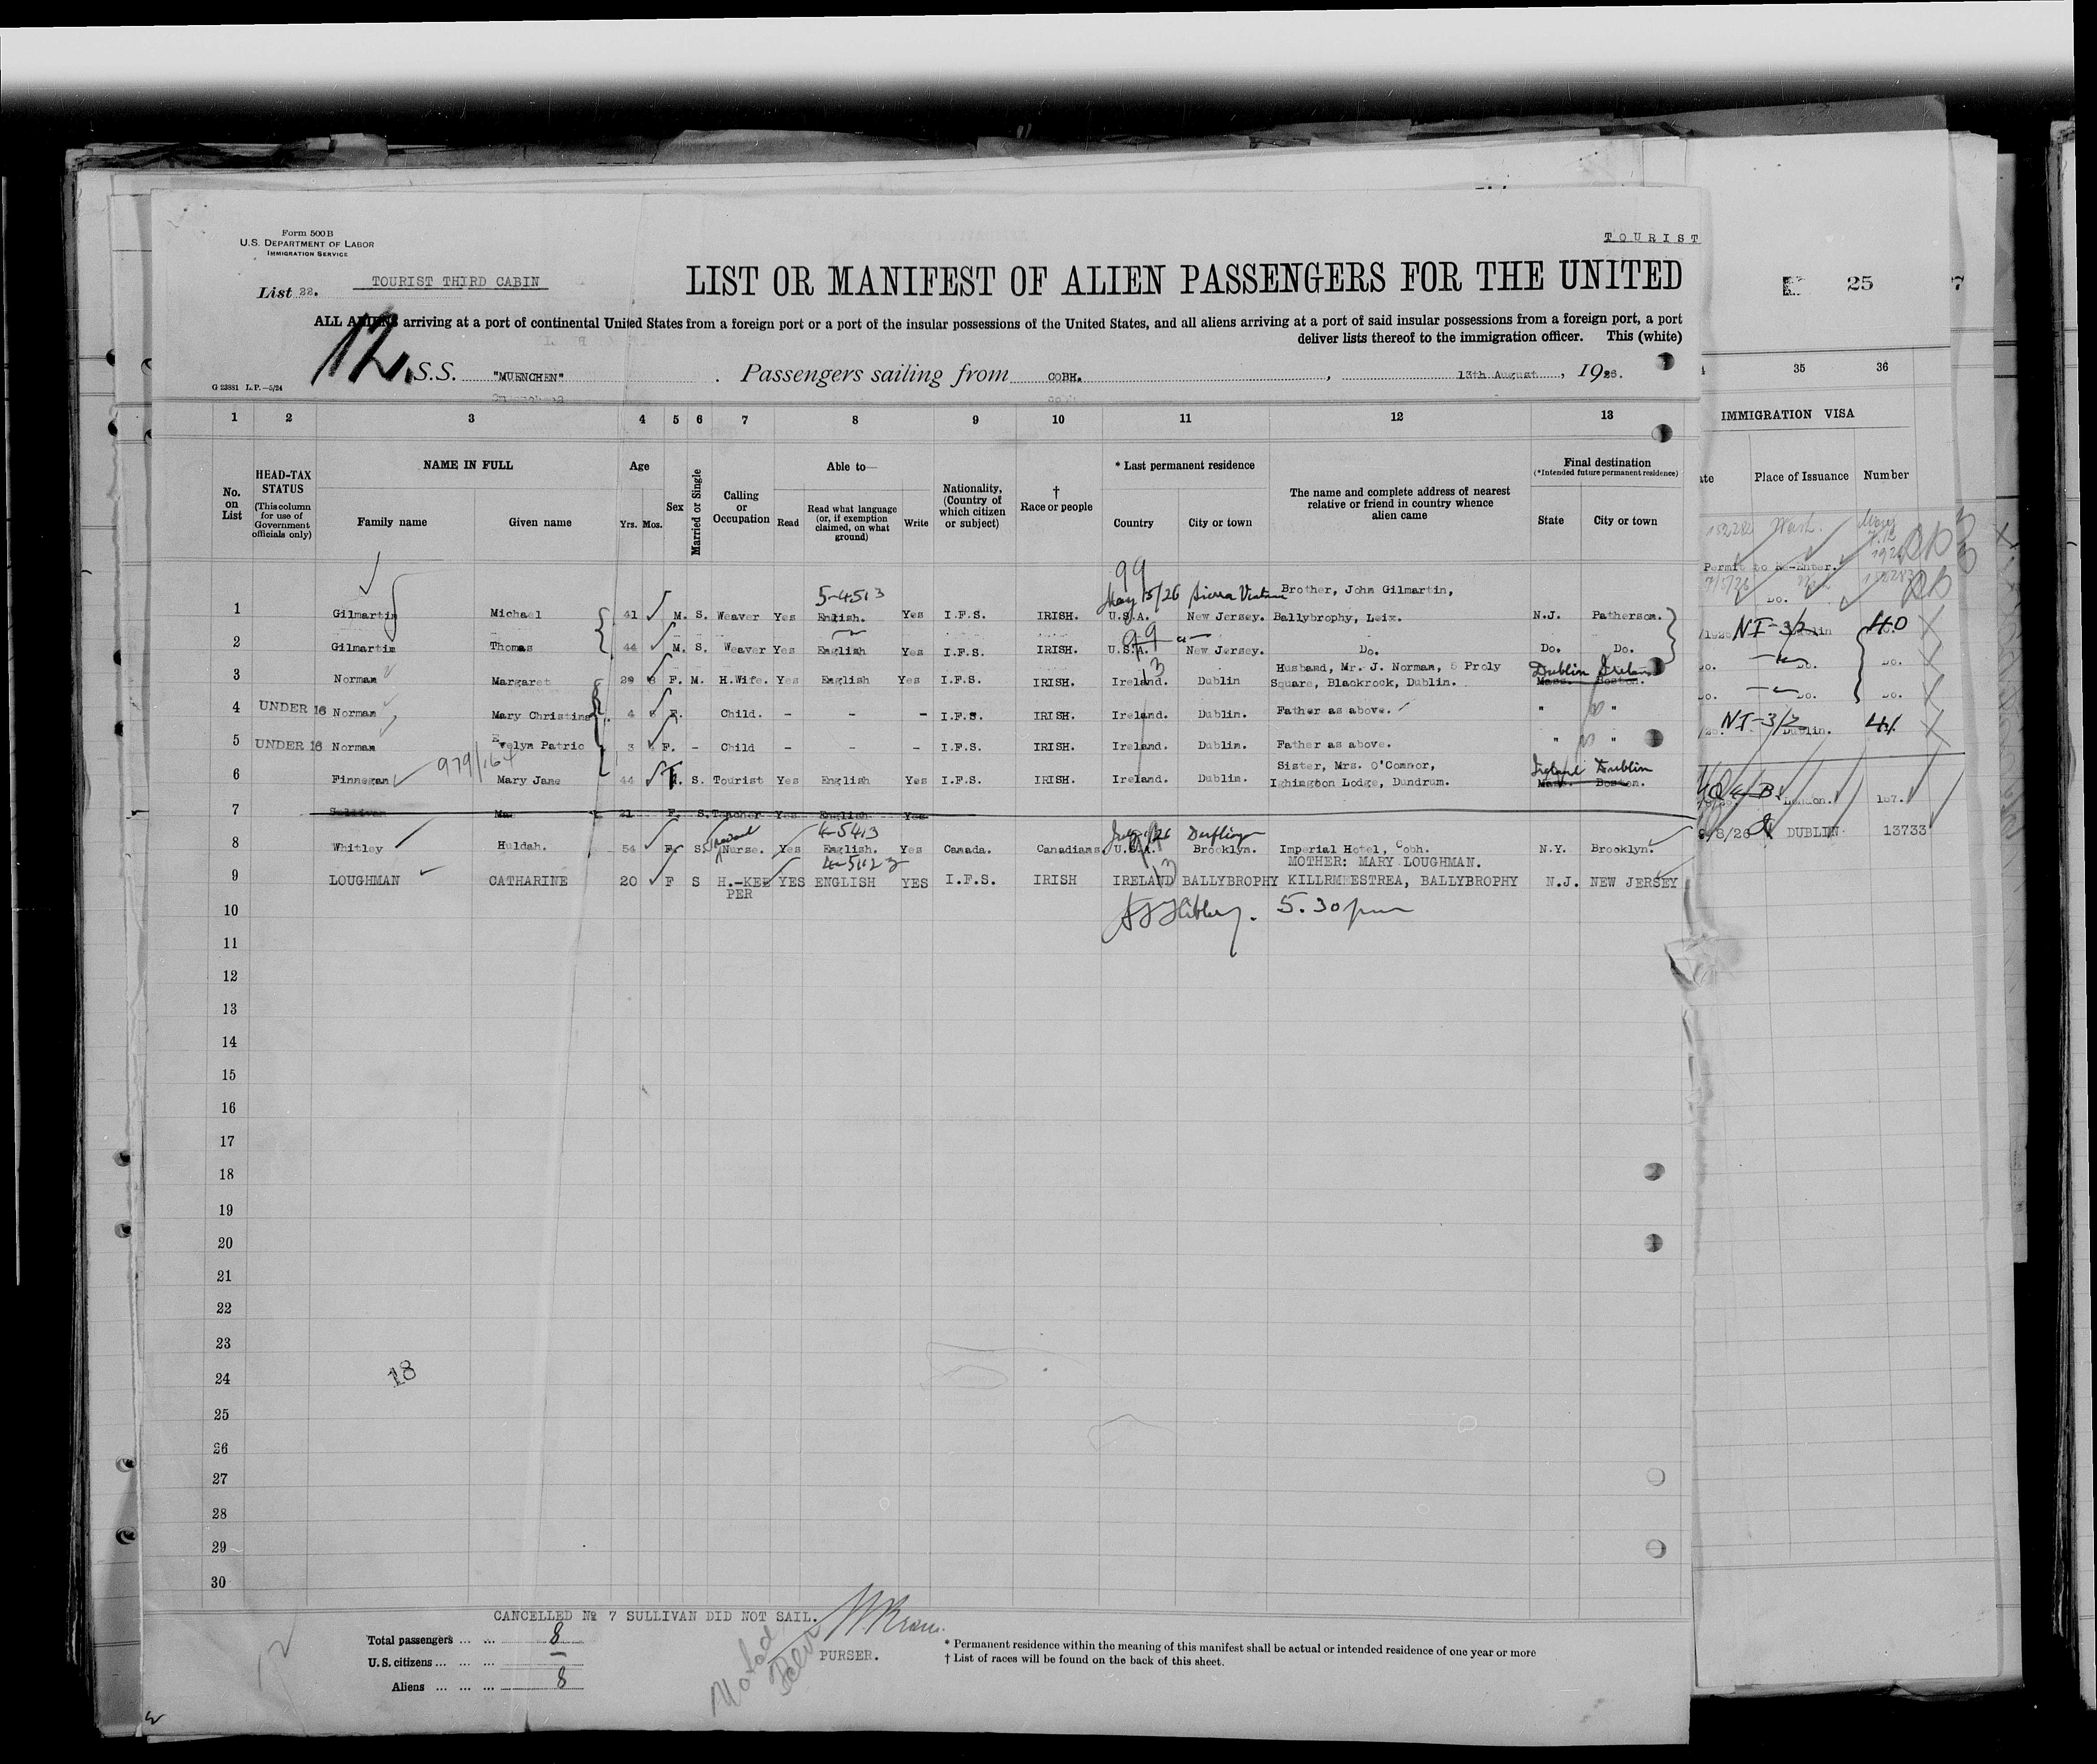 Form 500B
U.S. DEPARTMENT OF LABOR
IMMIGRATION SERVICE
TOURIST
List 22.
TOURIST THIRD CABIN
LIST OR MANIFEST OF ALIEN PASSENGERS FOR THE UNITED
25
7
ALL ALIENS arriving at a port of continental United States from a foreign port or a port of the insular possessions of the United States, and all aliens arriving at a port of said insular possessions from a foreign port, a port
deliver lists thereof to the immigration officer. This (white)
12.
S.S. "MUENCHEN" . Passengers sailing from COBH. , 13th August , 1926.
G 23881 L.P.—5/24
1 2 3 4 5 6 7 8 9 10 11 12 13 35 36
IMMIGRATION VISA
No. on List
HEAD-TAX STATUS (This column for use of Government officials only)
NAME IN FULL
Family name Given name
Age
Yrs. Mos.
Sex
Married or Single
Calling or Occupation
Able to—
Read
Read what language (or, if exemption claimed, on what ground)
Write
Nationality, (Country of which citizen or subject)
† Race or people
* Last permanent residence
Country City or town
The name and complete address of nearest relative or friend in country whence alien came
Final destination
(*Intended future permanent residence)
State City or town
Place of Issuance Number
Permit to Re-Enter.
Do.
99
5-4513 May 15/26 Sierra Ventana Brother, John Gilmartin,
1 Gilmartin Michael 41 M. S. Weaver Yes English. Yes I.F.S. IRISH. U.S.A. New Jersey. Ballybrophy, Leix. N.J. Patherson.
99
2 Gilmartin Thomas 44 M. S. Weaver Yes English Yes I.F.S. IRISH. U.S.A. New Jersey. Do. Do. Do.
NI-3/2 40
Husband, Mr. J. Norman, 5 Proly Dublin Ireland
3 Norman Margaret 29 F. M. H.Wife. Yes English Yes I.F.S. IRISH. Ireland. Dublin Square, Blackrock, Dublin. Mass. Boston.
4 UNDER 16 Norman Mary Christina 4 F. Child. - - - I.F.S. IRISH. Ireland. Dublin. Father as above. " "
5 UNDER 16 Norman Evelyn Patric 3 F. - Child - - - I.F.S. IRISH. Ireland. Dublin. Father as above. " "
NI-3/2 Dublin. 41
979/164
Sister, Mrs. O'Connor, Ireland Dublin
6 Finnegan Mary Jane 44 F. S. Tourist Yes English Yes I.F.S. IRISH. Ireland. Dublin. Ighington Lodge, Dundrum. Mass. Boston.
7 Sullivan Ma 21 F. S. Teacher Yes English Yes
London. 187.
4-5413
8 Whitley Huldah. 54 F. S. Nurse. Yes English. Yes Canada. Canadians. U.S.A. Brooklyn. Imperial Hotel, Cobh. N.Y. Brooklyn.
/8/26 DUBLIN 13733
MOTHER: MARY LOUGHMAN.
9 LOUGHMAN CATHARINE 20 F S H.-KEE PER YES ENGLISH YES I.F.S. IRISH IRELAND BALLYBROPHY KILLRMEESTREA, BALLYBROPHY N.J. NEW JERSEY
10 5.30 pm
11
12
13
14
15
16
17
18
19
20
21
22
23
24
18
25
26
27
28
29
30
CANCELLED № 7 SULLIVAN DID NOT SAIL.
PURSER.
Total passengers ... ... 8
U.S. citizens ... ... ... —
Aliens ... ... ... 8
* Permanent residence within the meaning of this manifest shall be actual or intended residence of one year or more
† List of races will be found on the back of this sheet.